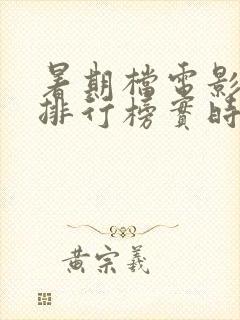 暑期檔電影
排行榜實時
黃宗羲